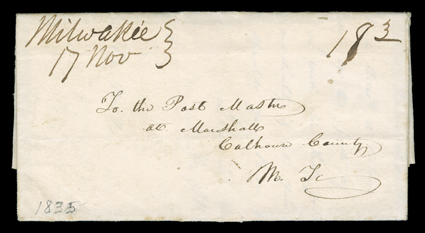 Milwakie
17 Nov
18 3
To. the Post Master
at Marshall
Calhoun County
M. Te
1835